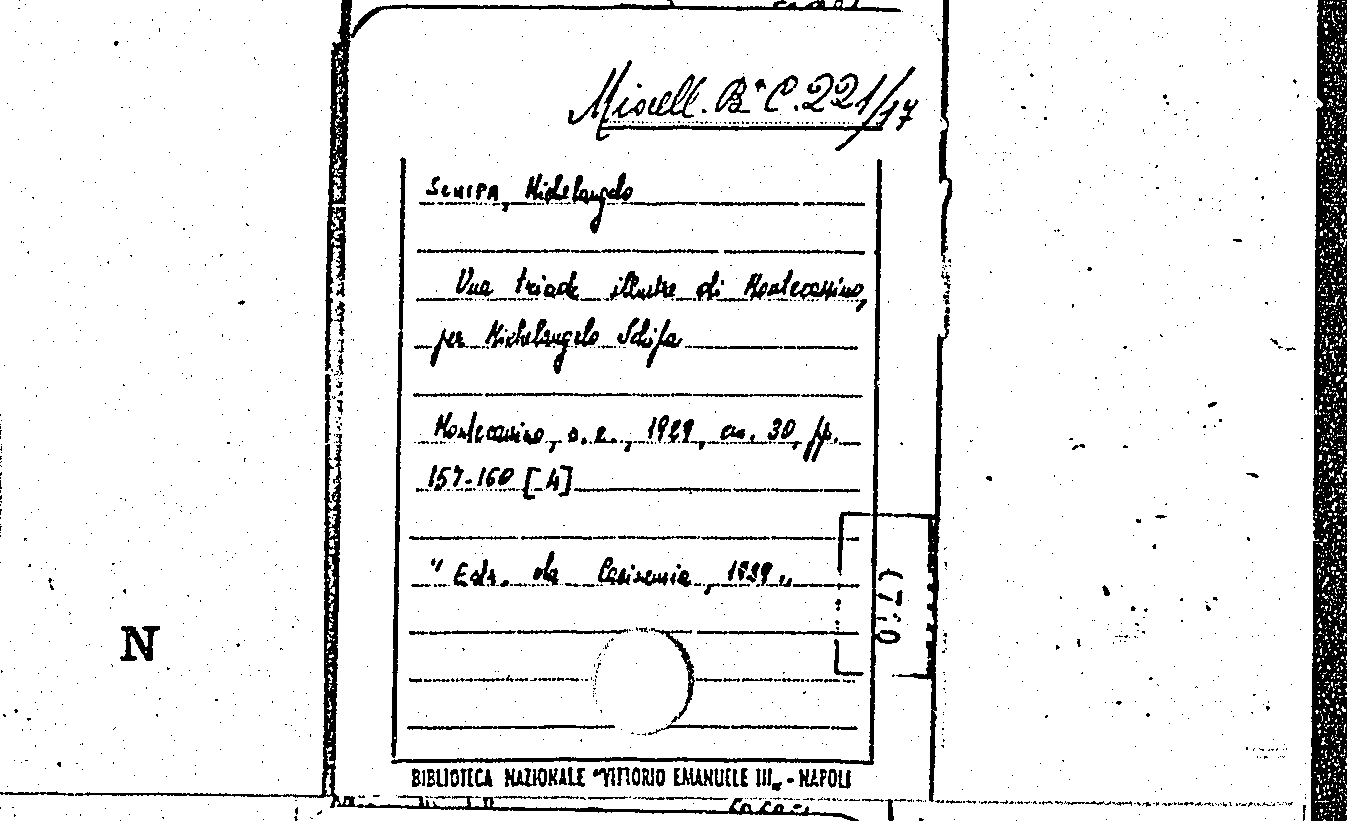 Miscell. Bª C. 221/17
SCHIPA, Michelangelo
Una triade illustre di Montecassino,
per Michelangelo Schipa
Montecassino, s. e., 1929, cm. 30, pp.
157-160 [4]
"Estr. da Casinensia, 1929„
N
BIBLIOTECA NAZIONALE "VITTORIO EMANUELE III„ - NAPOLI